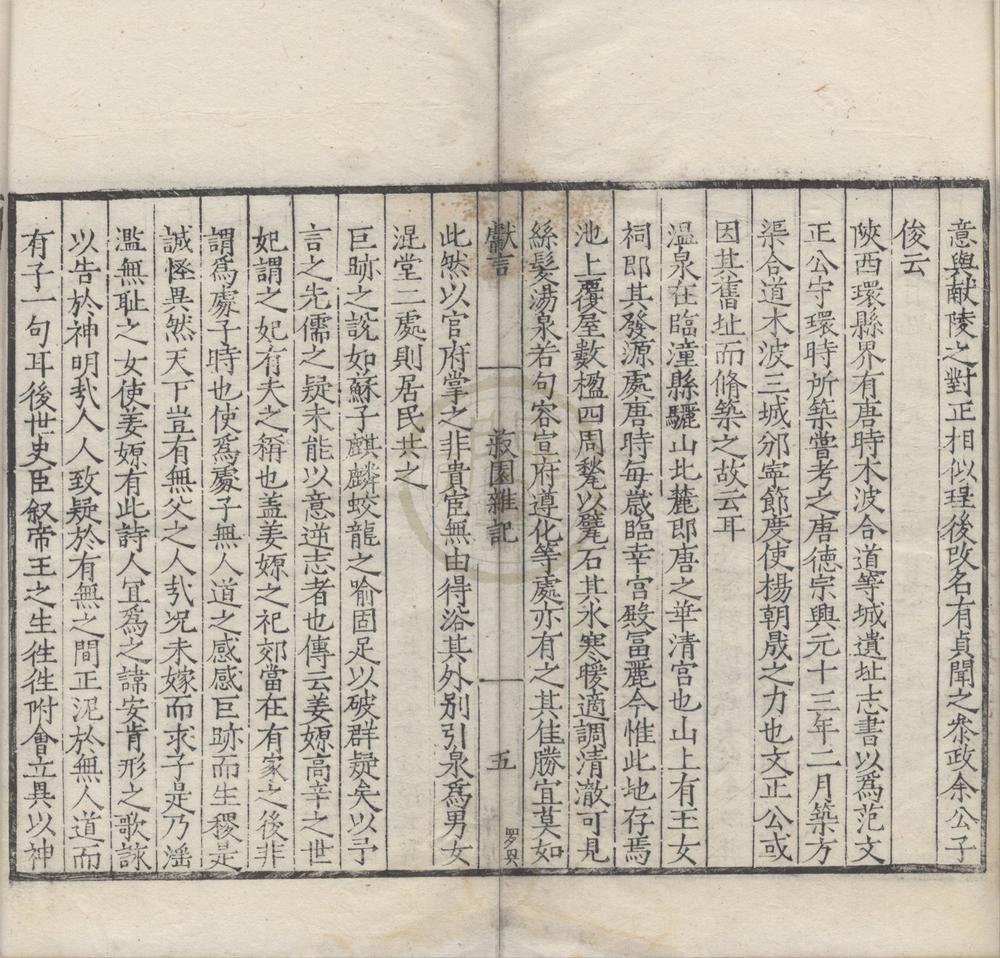 意與献陵之對正相似珵後改名有貞聞之叅政余公子
俊云
陜西環縣界有唐時木波合道等城遺址志書以爲范文
正公守環時所築嘗考之唐德宗興元十三年二月築方
渠合道木波三城邠寧節度使楊朝晟之力也文正公或
因其舊址而脩築之故云耳
溫泉在臨潼縣驪山北麓即唐之華清宫也山上有王女
祠即其發源處唐時每歲臨幸宫殿冨麗今惟此地存焉
池上覆屋數楹四周甃以甓石其水寒暖適調清澈可見
絲髮湯泉若句容宣府遵化等處亦有之其佳勝宜莫如
獻言
菽園雜記
五
此然以官府掌之非貴宦無由得浴其外别引泉爲男女
混堂二處則居民共之
巨跡之說如蘇子麒麟蛟龍之喻固足以破群疑矣以予
言之先儒之疑未能以意逆志者也傳云姜嫄高辛之世
妃謂之妃有夫之稱也盖姜嫄之祀郊當在有家之後非
謂爲處子時也使爲處子無人道之感感巨跡而生稷是
誠怪異然天下豈有無父之人㢤况未嫁而求子是乃滛
濫無耻之女使姜嫄有此詩人冝爲之諱安肯形之歌詠
以告於神明㢤人人致疑於有無之間正泥於無人道而
有子一句耳後世史臣叙帝王之生徃徃附會立異以神